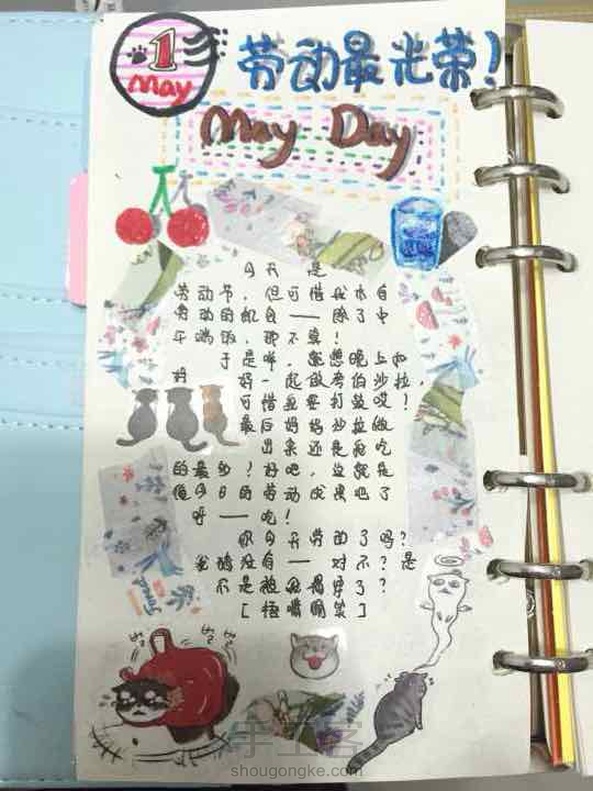 1
May
劳动最光荣!
May Day
今天 是
劳动节,但可惜我木自
劳动的机会——除了中
午端饭,那不算!
于是呼,就想晚上和
妈 好一起做考伯沙拉,
可惜我要打鼓哎!
最后妈妈沙拉做
出来还是我吃
的最多?好吧,这就是
俺今日的劳动成果吧了
呼——吃!
你今天劳动了吗?
我猜没有——对不?是
不是被我揭穿了?
[捂嘴偷笑]
手工客
shougongke.com